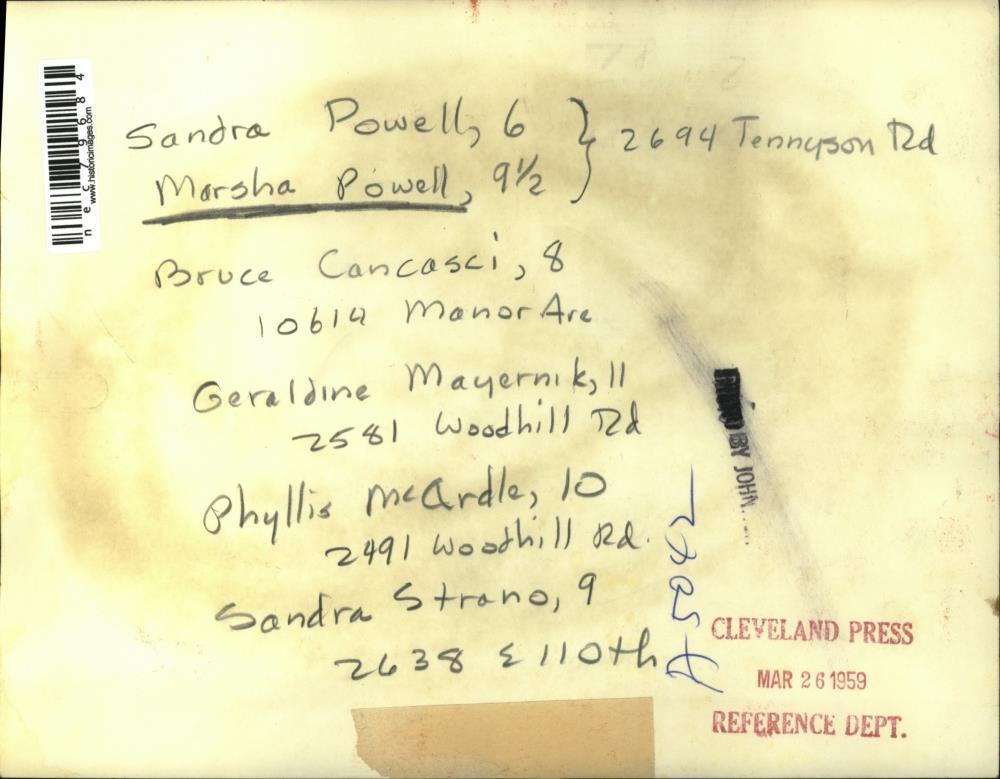 Sandra Powell, 6 } 2694 Tennyson Rd
Marsha Powell, 9½
Bruce Cancasci, 8
10614 Manor Ave
Geraldine Mayernik, 11
2581 Woodhill Rd
Phyllis McArdle, 10
2491 Woodhill Rd.
Sandra Strano, 9
2638 E 110th
BY JOHN
CLEVELAND PRESS
MAR 26 1959
REFERENCE DEPT.
www.historicimages.com
nec79684